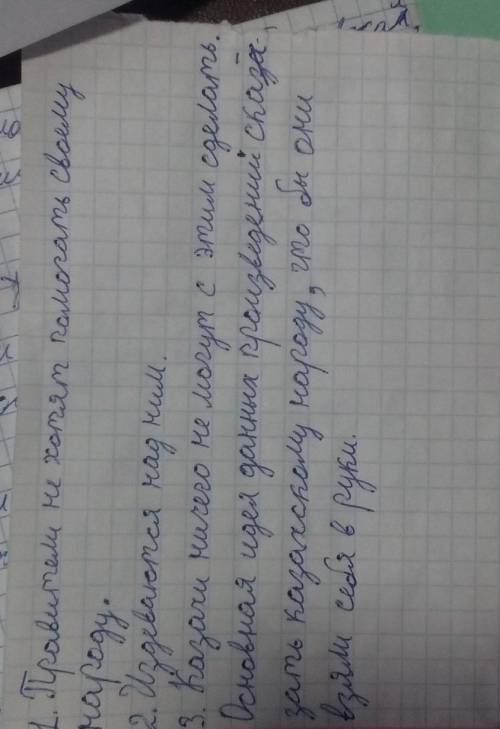 1. Правители не хотят помогать своему
народу.
2. Издеваются над ним.
3. Казахи ничего не могут с этим сделать.
Основная идея данных произведений сказа-
зать казахскому народу, что бы они
взяли себя в руки.